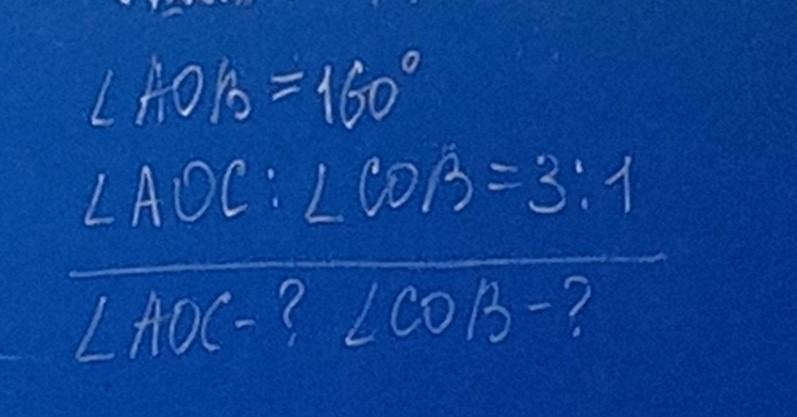 ∠AOB = 160°
∠AOC : ∠COB = 3 : 1
∠AOC - ? ∠COB - ?